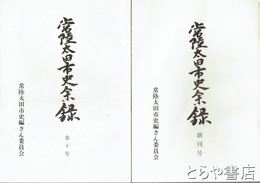 常陸太田市史余録
創刊号
常陸太田市史編さん委員会
常陸太田市史余録
第十号
常陸太田市史編さん委員会
とらや書店